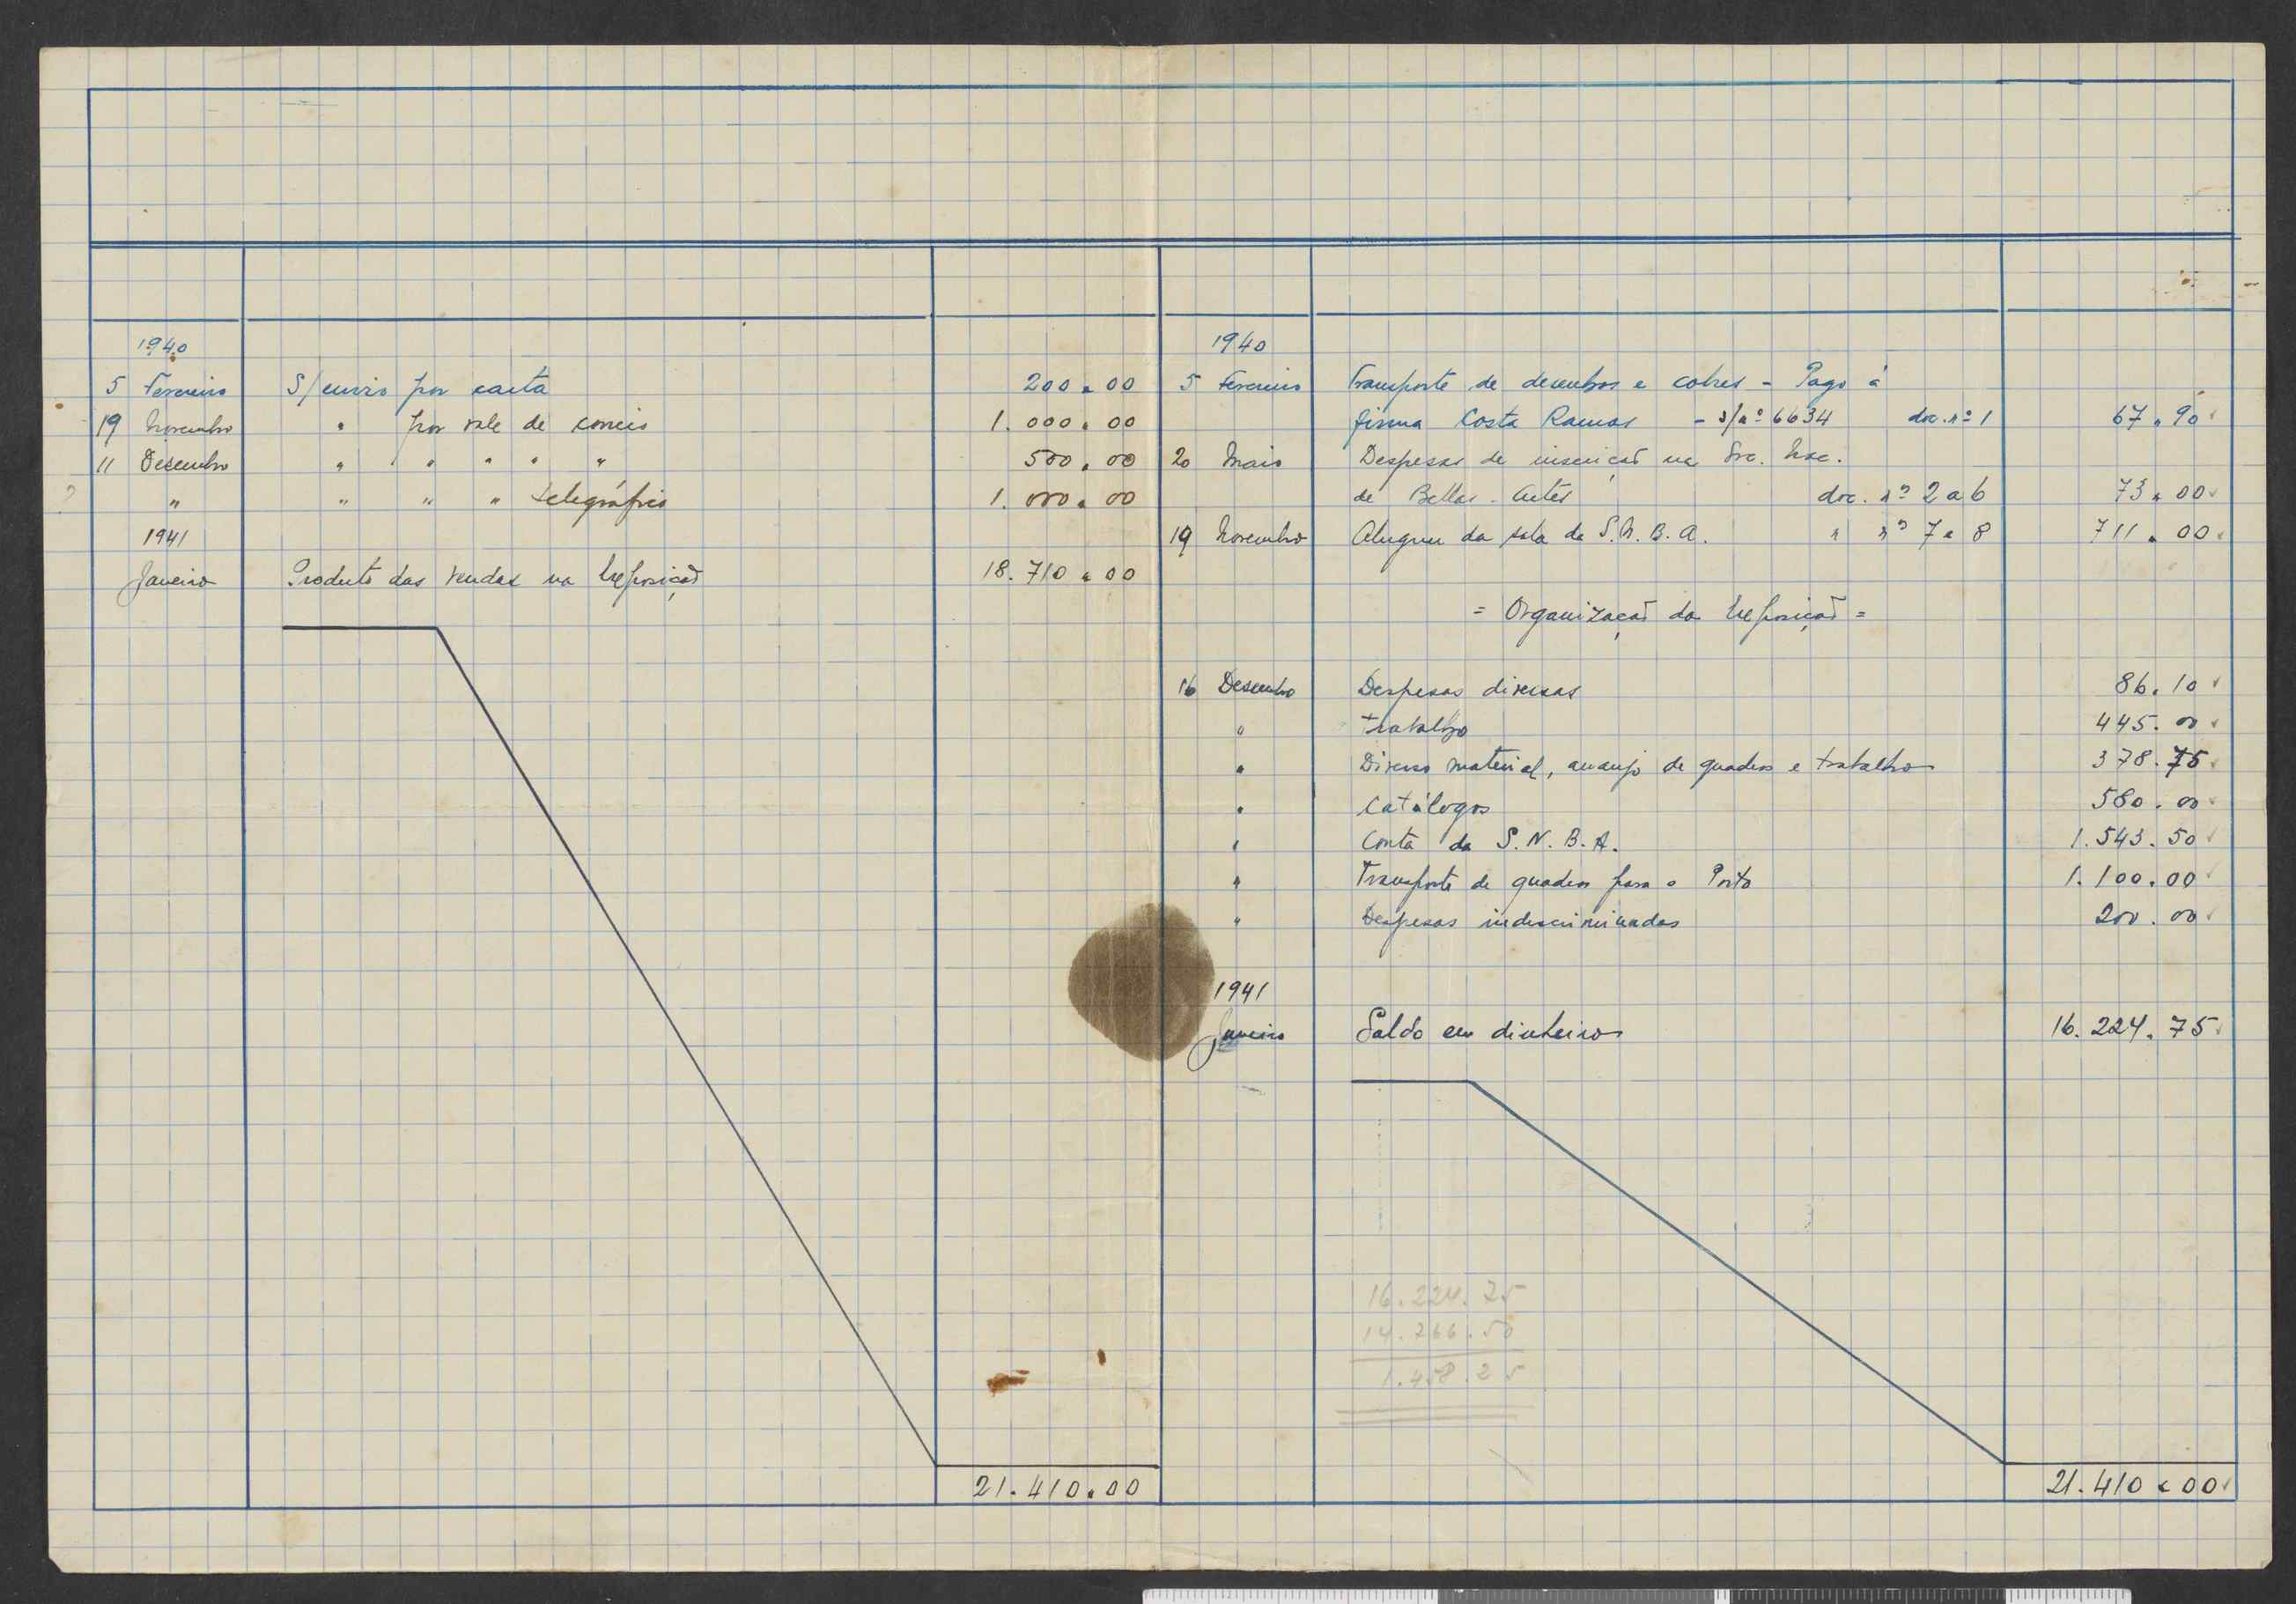 1940
5 Fevereiro S/ envio por carta 200.00
19 Novembro " por vale de correio 1.000.00
11 Dezembro " " " " " 500.00
" " " " telegráfico 1.000.00
1941
Janeiro Produto das vendas na Exposição 18.710.00
21.410.00
1940
5 Fevereiro Transporte de desenhos e cobres - Pago á
firma Costa Ramos - s/nº 6634 doc. nº 1 67.90
20 Maio Despesas de inscrição na Soc. Nac.
de Bellas-Artes doc. nº 2 a 6 73.00
19 Novembro Aluguer da sala da S.N.B.A. " nº 7 e 8 711.00
= Organização da Exposição =
16 Dezembro Despesas diversas 86.10
" Trabalho 445.00
" Diverso material, arranjo de quadros e trabalho 378.75
" Catálogos 580.00
" Conta da S.N.B.A. 1.543.50
" Transporte de quadros para o Porto 1.100.00
" Despesas indescriminadas 200.00
1941
Janeiro Saldo em dinheiro 16.224.75
16.224.75
14.766.50
1.458.25
21.410.00